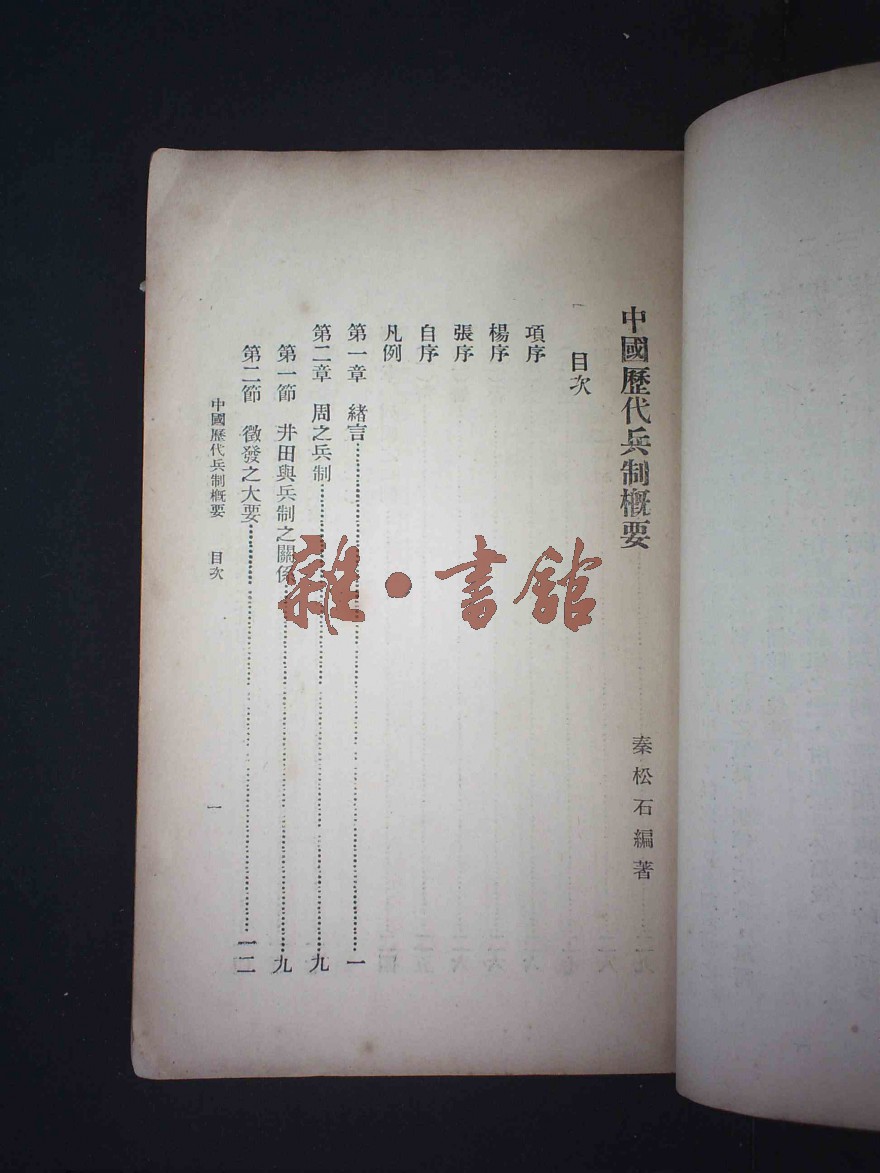 中國歷代兵制概要
秦松石編著
目次
項序
楊序
張序
自序
凡例
第一章 緒言……一
第二章 周之兵制……九
第一節 井田與兵制之關係……九
第二節 徵發之大要……一二
中國歷代兵制概要 目次
一
雜·書館